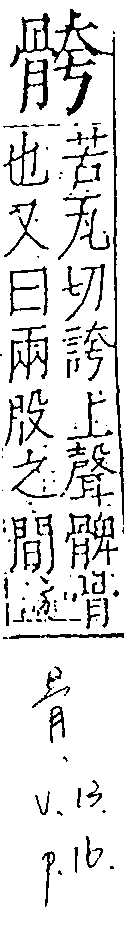 骻
苦瓦切誇上聲髀骨
也又曰兩股之間
骨.
v. 13.
p. 16.